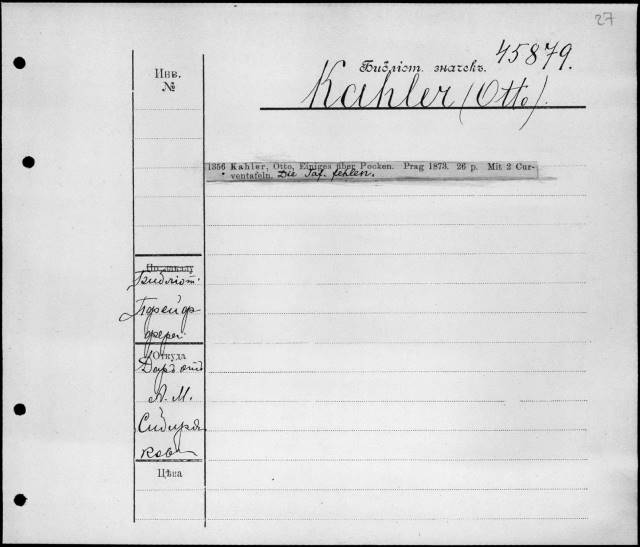 27
45879.
Инв.
№
Библіот. значекъ.
Kahler (Otto).
1356 Kahler, Otto, Einiges über Pocken. Prag 1873. 26 p. Mit 2 Cur-
ventafeln. Die Taf. fehlen.
По заказу
Библіот.
Пфейф
фера
Откуда
Даръ отъ
А. М.
Сибиря
кова
Цѣна